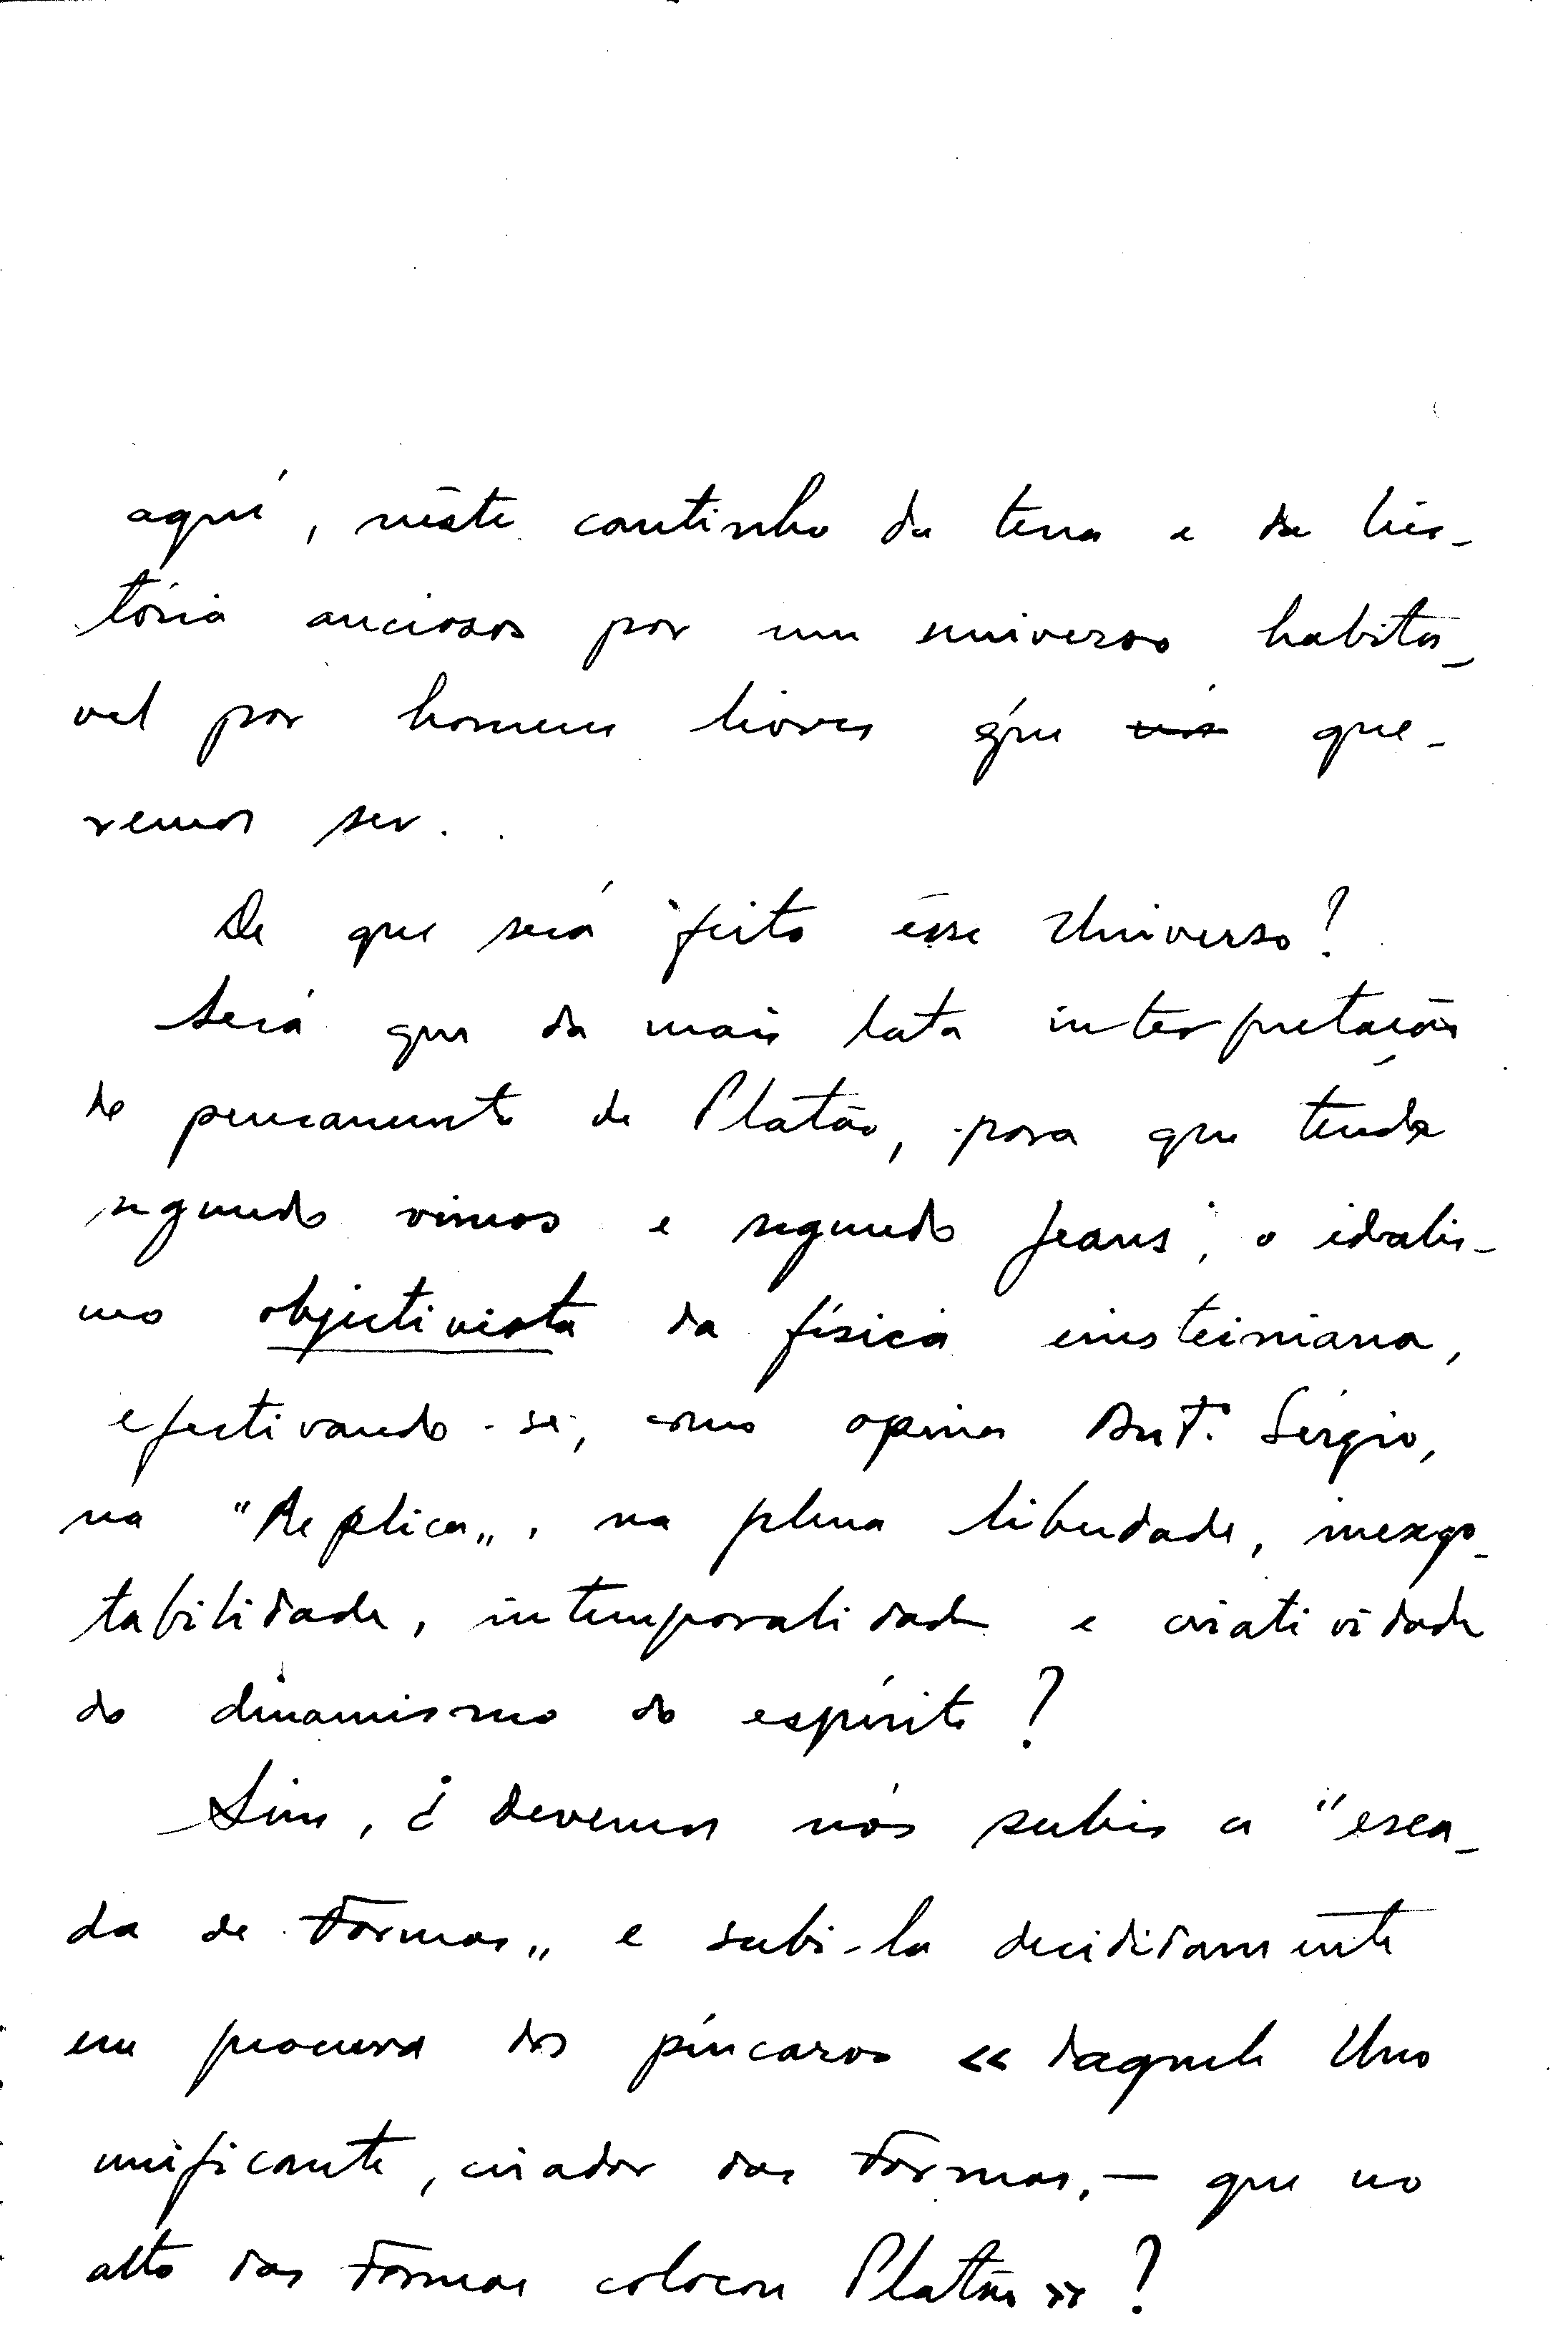 aquí, nêste cantinho da terra e da his-
tória anciosos por um universo habitá-
vel por homens livres q́ue nós que-
remos ser.
De que será feito êsse Universo?
Será que da mais lata interpretação
do pensamento de Platão, para que tende
segundo vimos e segundo Jeans, o idealis-
mo objectivista da física einsteiniana,
efectivando-se, como opina Ant. Sérgio,
na "Replica„, na plena liberdade, inexgo-
tabilidade, intemporalidade e criatividade
do dinamismo do espírito?
Sim, ¿ devemos nós subir a "esca-
da de Formas„ e subi-la decididamente
em procura dos píncaros «daquele Uno
unificante, criador das Formas, — que no
alto das Formas colocou Platão»?